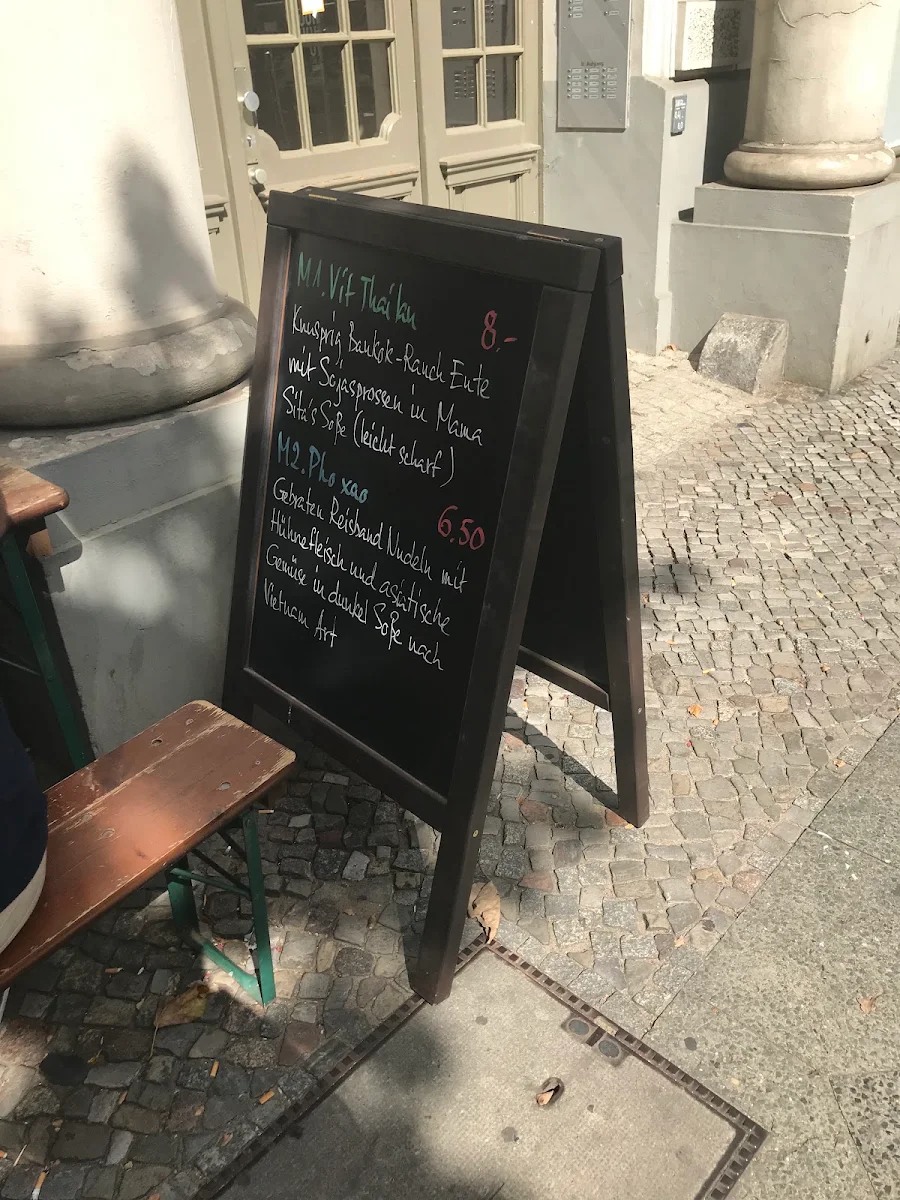 M1. Vit Thai lan
8.-
Knusprig Bankok-Rauch Ente
mit Sojasprossen in Mama
Sita's Soße (leicht scharf)
M2. Pho xao
6.50
Gebraten Reisband Nudeln mit
Hühnefleisch und asiatische
Gemüse in dunkel Soße nach
Vietnam Art